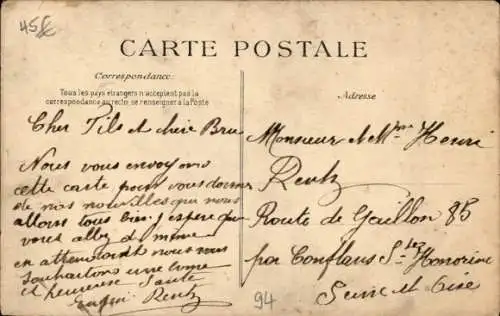 45€
CARTE POSTALE
Correspondance
Tous les pays étrangers n'acceptent pas la
correspondance au recto, se renseigner à la Poste
Cher Fils et chère Bru
Nous vous envoyons
cette carte pour vous donner
de nos nouvelles que nous
allons tous bien j'espère que
vous allez de même
en attendant nous vous
souhaitons une bonne
et heureuse Santé
Rentz
Adresse
Monsieur et Mme Henri
Rentz
Route de Gaillon 85
par Conflans Ste Honorine
Seine et Oise
94